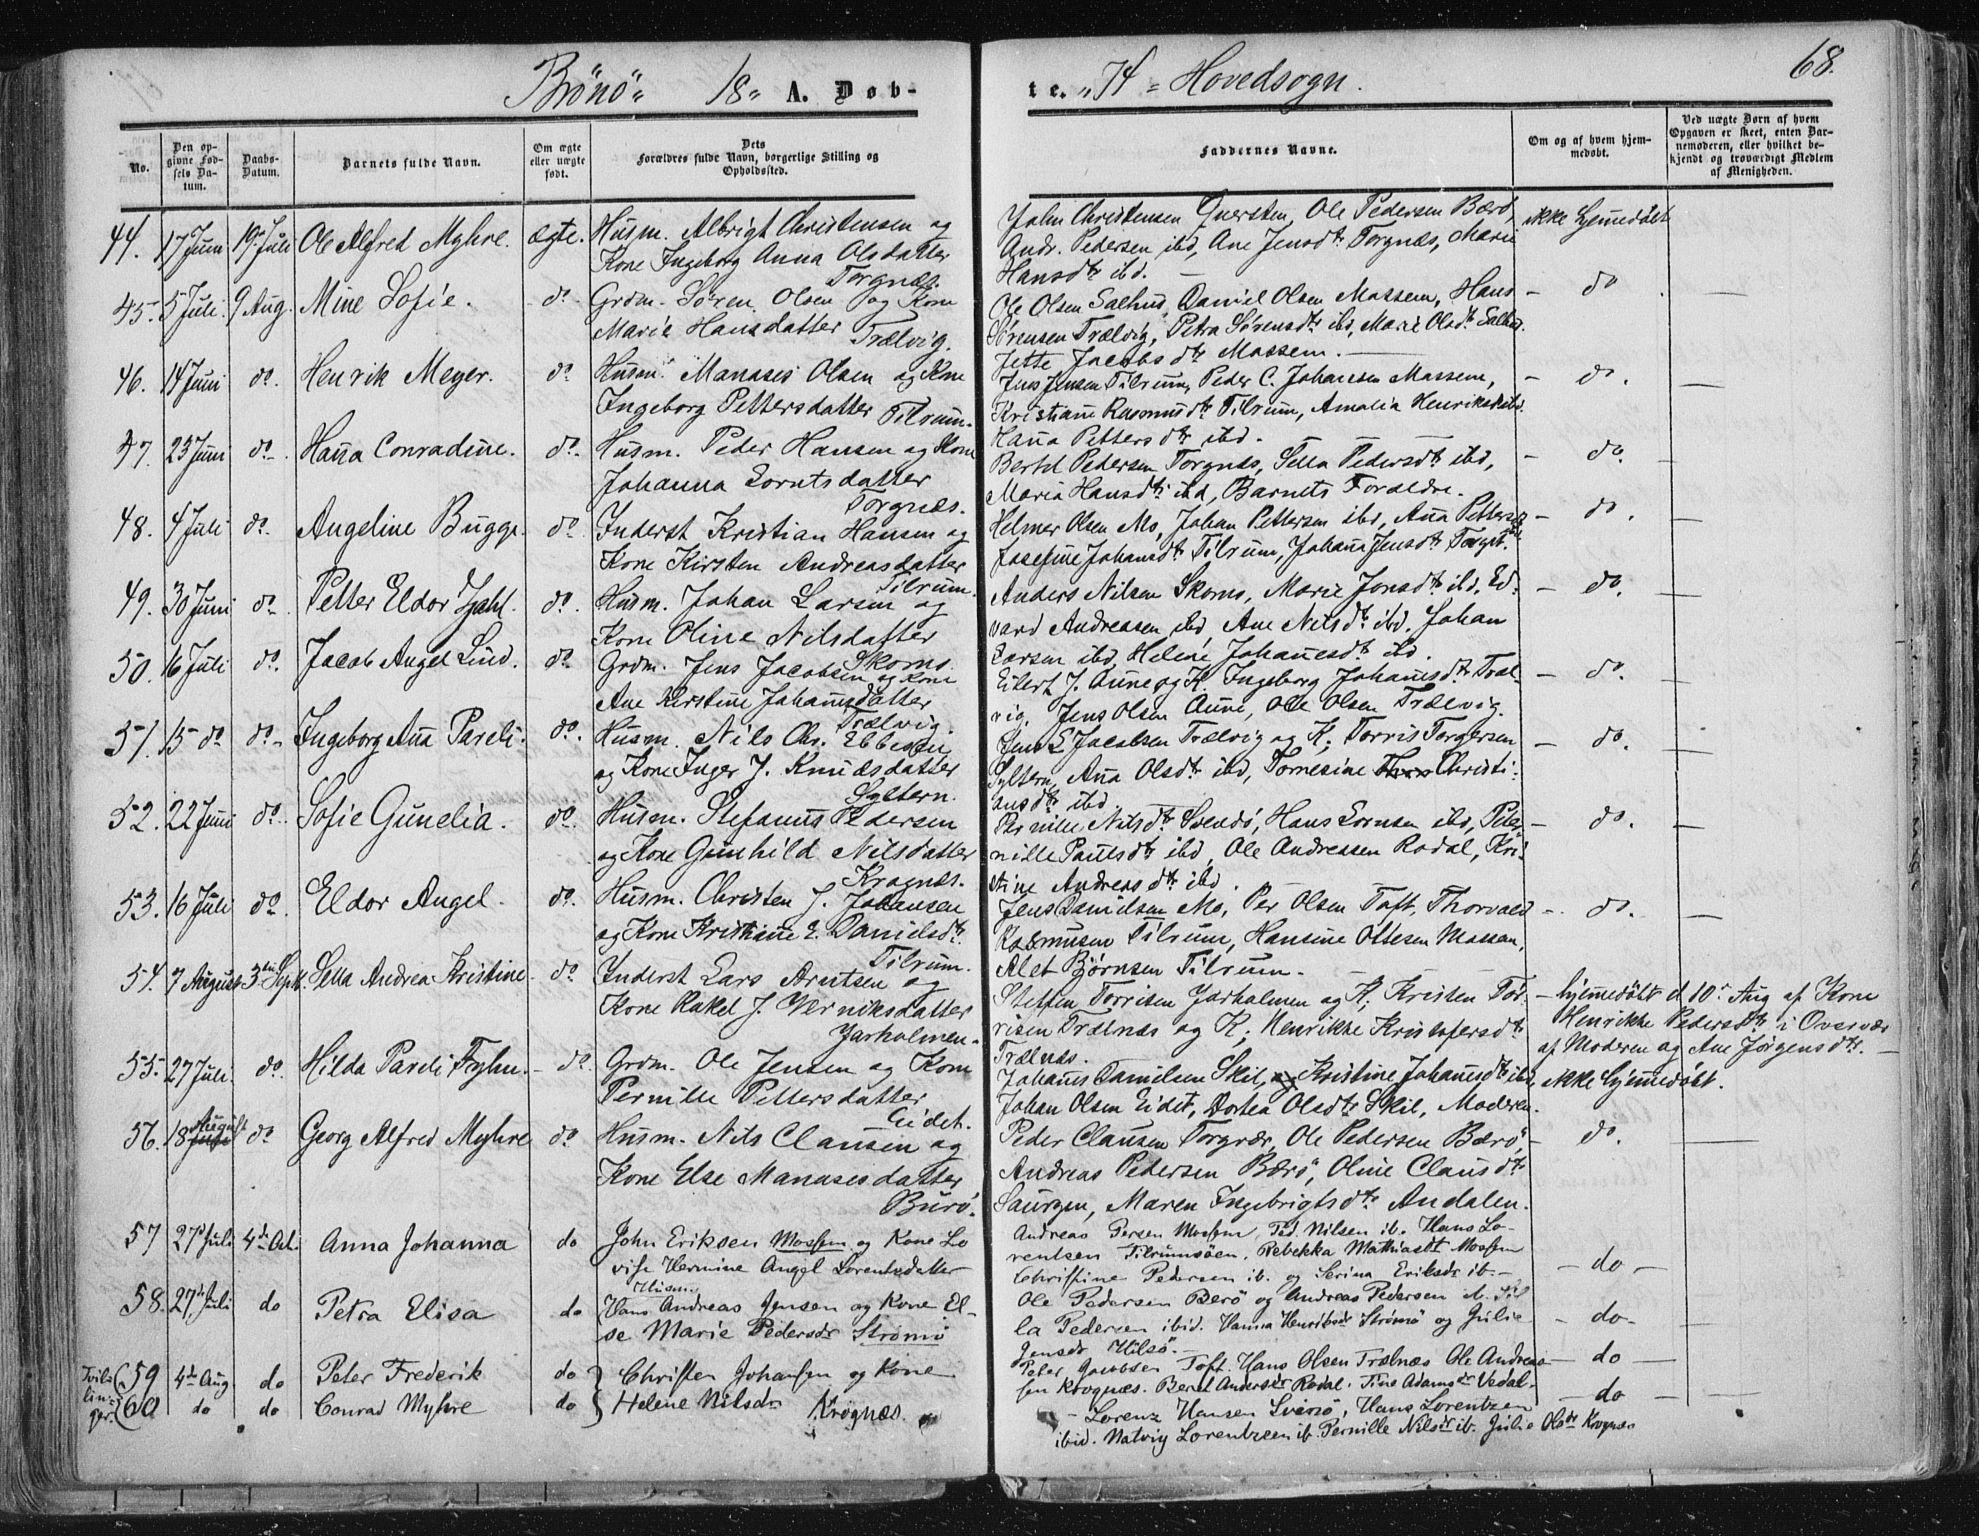 68.
Brönö 18 A. Døb-
te. 74 Hovedsogn.
No.
Den op-
givne Fød-
sels Da-
tum.
Daabs-
Datum.
Barnets fulde Navn.
Om ægte
eller uægte
født.
Dets
Forældres fulde Navn, borgerlige Stilling og
Opholdssted.
Faddernes Navne.
Om og af hvem hjem-
medøbt.
Ved uægte Børn af hvem
Opgaven er skeet, enten Bar-
nemoderen, eller hvilket be-
kjendt og troværdigt Medlem
af Menigheden.
44. 17 Juni 19 Juli Ole Alfred Myhre. ægte. Husm. Albrigt Christensen og
Kone Ingeborg Anna Olsdatter
Torgnæs.
John Christensen Ole Pedersen Bærö,
Andr. Pedersen ibd, Ane Jensdtr Torgnæs, Marie
Hansdtr ibd.
ikke hjemmedøbt
45. 5 Juli. 9 Aug. Mine Sofie. do Grdm. Sören Olsen og Kone
Marie Hansdatter Trælvig.
Ole Olsen Salhus, Daniel Olsen Massem, Hans
Sørensen Trælvig, Petra Sørensdtr ibd, Marie Olsdtr Salhus.
Jette Jacobsdtr Massem.
do
46. 14 Juni do. Henrik Meyer. do Husm. Manases Olsen og Kone
Ingeborg Pettersdatter Tilrum.
Jens Jensen Tilrum, Peder C. Johansen Massem,
Kristiane Rasmusdtr Tilrum, Amalia Henriksd ibd.
Hana Pettersdtr ibd.
do.
47. 23 Juni do. Hana Conradine. do. Husm. Peder Hansen og Kone
Johanna Lorntsdatter
Torgnæs.
Bertel Pedersen Torgnæs, Sella Pedersdtr ibd,
Maria Hansdtr ibd, Barnets Forældre.
do.
48. 4 Juli do. Angeline Bugge. do Inderst Kristian Hansen og
Kone Kirsten Andreasdatter
Tilrum.
Helmer Olsen Mo, Johan Pettersen ibd, Ana Pettersd
Josefine Johansdtr Tilrum, Johana Jensdtr
do.
49. 30 Juni do. Petter Eldor Zahl. do. Husm. Johan Larsen og
Kone Oline Nilsdatter
Skomo.
Anders Nilsen Skomo, Marie Jonsdtr ibd, Ed-
vard Andreasen ibd, Ane Nilsdtr ibd, Johan
Larsen ibd, Helene Johanesdtr ibd.
do.
50. 16 Juli do. Jacob Angel Lind. do Grdm. Jens Jacobsen og Kone
Ane Kirstine Johanesdatter
Trælvig.
Eilert J. Aune og K. Ingeborg Johanesdtr Træl-
vig, Jens Olsen Aune, Ole Olsen Trælvig.
do.
51. 15 do do. Ingeborg Ana Pareli. do. Husm. Nils Chr. Ebbesen
og Kone Inger J. Knudsdatter
Syltern.
Jens L Jacobsen Trælvig og K; Torris Torgersen
Syltern, Ana Olsdtr ibd, Tomesine Christi-
ansdtr ibd
do.
52. 22 Juni do. Sofie Gunelia. do. Husm. Stefanus Pedersen
og Kone Gunhild Nilsdatter
Krognæs.
Pernille Nilsdtr Svendö, Hans Lornsen ibd, Peter-
nille Paulsdtr ibd, Ole Andreasen Rodal, Kri-
stine Andreasdtr ibd.
do.
53. 16 Juli do. Eldor Angel. do. Husm. Christen J. Johansen
og Kone Kristiane E. Danielsdtr.
Tilrum.
Jens Danielsen Mo, Per Olsen Toft, Thorvald
Rasmusen Tilrum, Hansine Ottesen Massem,
Alet Björnsen Tilrum.
do.
54. 7 August 3die Sept. Sella Andrea Kristine do. Inderst Lars Arntsen og
Kone Rakel J. Verniksdatter
Jarholmen.
Steffen Torrisen Jarholmen og K; Kristen Tor-
risen Trælnæs og K; Henrikke Kristofersdtr
Trælnæs.
hjemmedøbt d 10 Aug af Kone
Henrikke Pedersdtr i Overvær
af Moderen og Ane Jörgensdtr.
55. 27 Juli. do. Hilda Pareli Fyhn. do. Grdm. Ole Jensen og Kone
Pernille Pettersdatter
Eidet.
Johanes Danielsen Skil, og Kristine Johanesdtr ibd,
Johan Olsen Eidet, Dortea Olsdtr Skil, Moderen.
ikke hjemmedøbt.
56. 18 August do Georg Alfred Myhre do Husm. Nils Clausen og
Kone Else Manasesdatter
Burö.
Peder Clausen Torgvær, Ole Pedersen Bærö,
Andreas Pedersen Bærö, Oline Clausdtr
Sauren, Maren Ingebrigtsdtr Andalen.
do.
57 27d Juli 4de Oct. Anna Johanna do John Eriksen Mossem og Kone Lo
vise Hermine Angel Lorentzdatter
Andreas Persen Mossem, Ped. Nilsen ib. Hans Lo-
rentsen Tilrumsöen. Rebekka Mathiasdt Mossem
Christine Pedersen ib. og Serina Eriksdr ib.
do
58. 27d Juli do Petra Elisa do Husm.
Hans Andreas Jensen og Kone El-
se Marie Pedersdr Strömö
Ole Pedersen Berö og Andreas Pedersen ib. Sil
la Pedersen ibid. Hanna Henriksdr Strömö og Julie
Jensdr Hilsö.
do
Tvil-
lin-
ger.
59 4de Aug do Peter Frederik do Christen Johansen og Kone
60 do do Conrad Myhre do Helene Nilsdr Krognæs.
Peter Jacobsen Toft. Hans Olsen Trælnæs Ole Andreas-
sen Krognæs. Beret Andersdr Rodal. Tine Adamsdr Vedal.
do
Lorenz Hansen Svensö, Hans Lorentzen
ibid. Natvig Lorentzen ib. Pernille Nilsdr ib. Julie Olsdr Krognæs
do